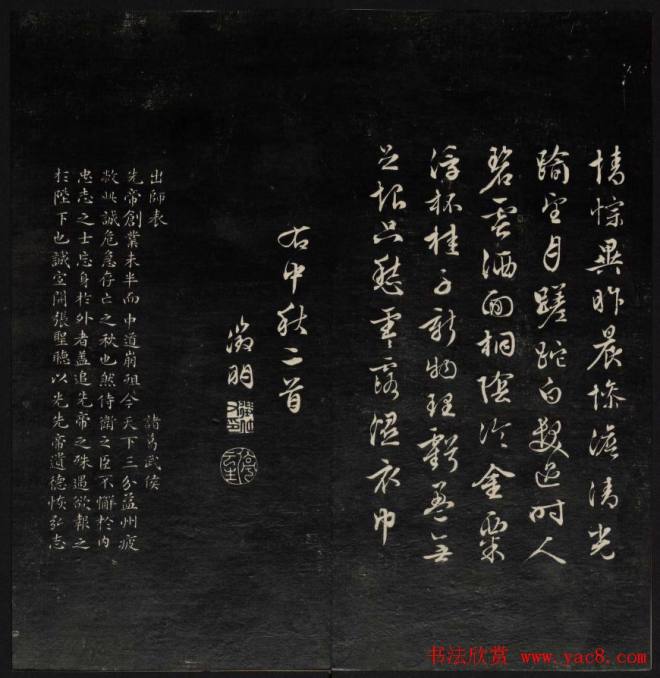 情悰異昨晨惨澹清光
踰望月蹉跎白髮過時人
碧雲洒面桐陰冷金粟
浮杯桂子新物理虧盈無
足恨只愁零露濕衣巾
右中秋二首
徵明
出師表
諸葛武侯
先帝創業未半而中道崩殂今天下三分益州疲
敝此誠危急存亡之秋也然侍衛之臣不懈於内
忠志之士忘身於外者蓋追先帝之殊遇欲報之
於陛下也誠宜開張聖聽以光先帝遺德恢弘志
书法欣赏 www.yac8.com